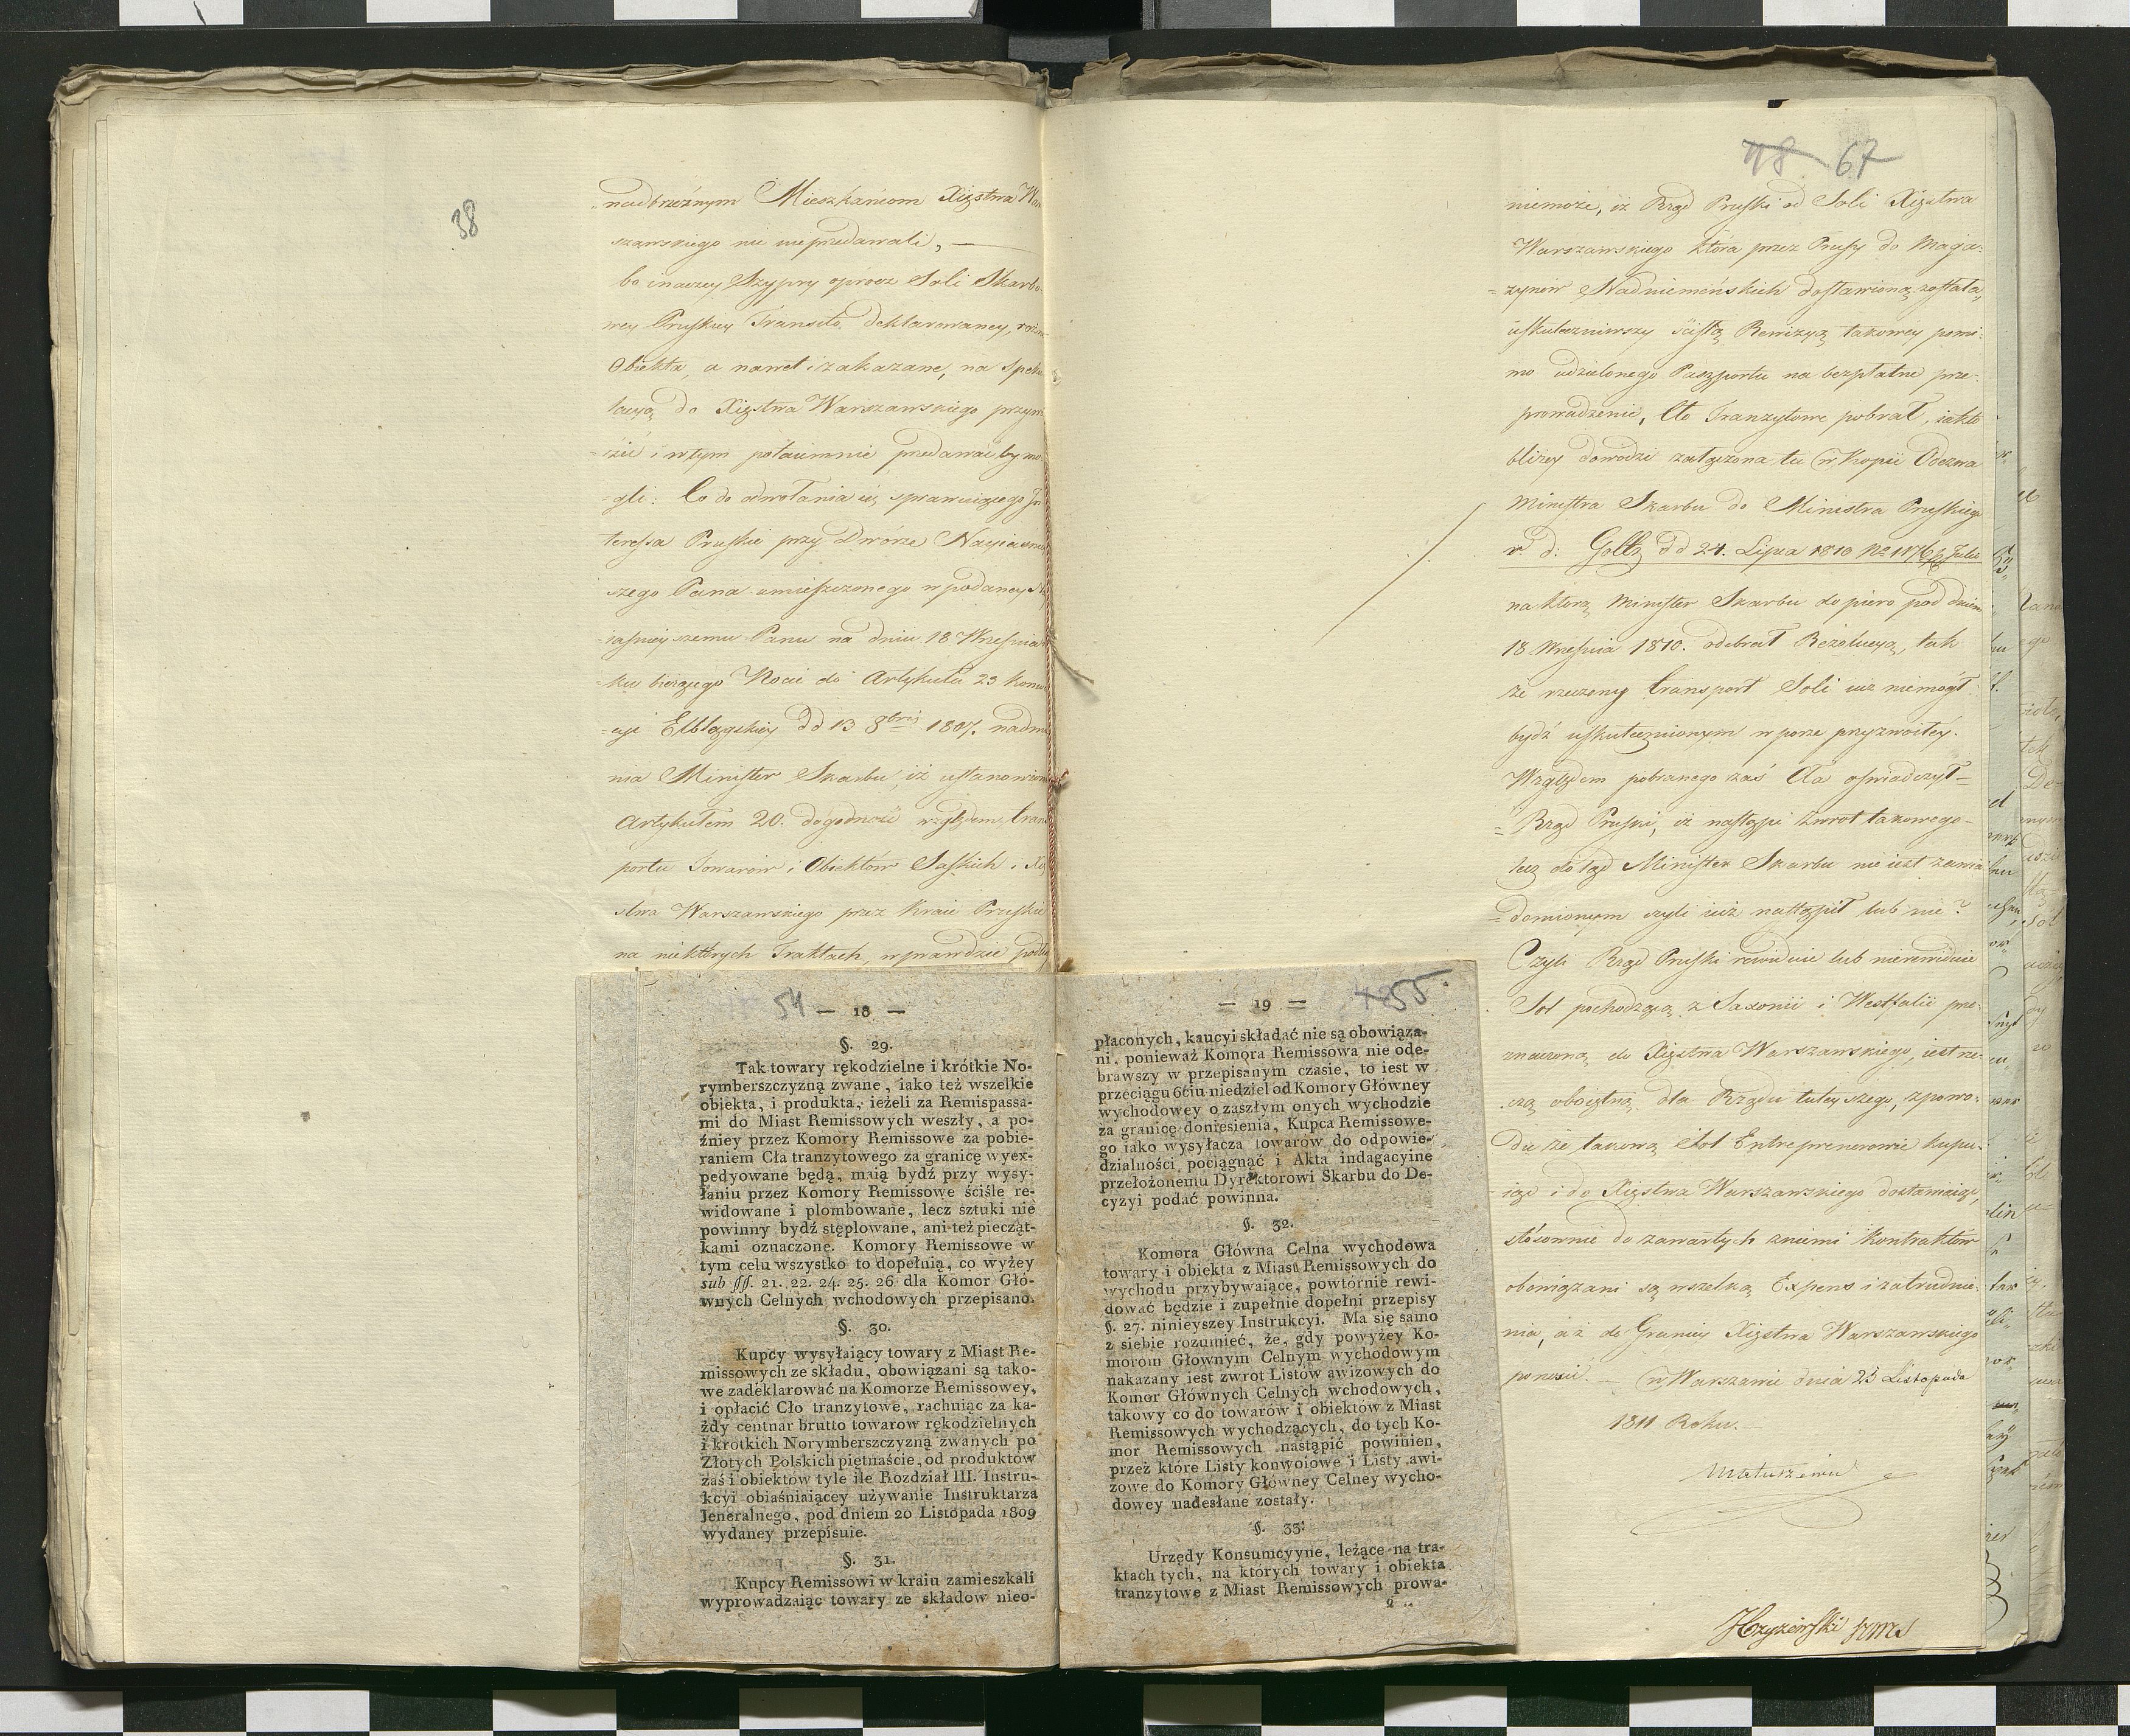 38
nadbrzeżnym Mieszkańcom Xięstwa War
szawskiego nie nieprzedawali, —
bo inaczey Szypry oprócz Soli Skarbo-
wey Pruskiey Transito deklarowaney, różne
Obiekta, a nawet i zakazane, na Speku
lacyą do Xięstwa Warszawskiego przywo
=zić i w tym potaiemnie przedawać by mo
=gli. Co do odwołania się, sprawuiącego In
teressa Pruskie przy Dworze Nayiaśniey
szego Pana umieszczonego w podaney N
=iaśnieyszemu Panu na dniu 18 Września
=ku bieżącego Nocie do Artykułu 23 Konwen
=cyi Elblągskiey dd 13 8bris 1807. nadmie
nia Minister Skarbu, iż ustanowiona
Artykułem 20. dogodność względem trans
portu Towarów i Obiektów Saskich i Xię
stwa Warszawskiego przez Kraie Pruskie
na niektórych Traktach, wprawdzie
54 — 18 —
§. 29.
Tak towary rękodzielne i krótkie No-
rymberszczyzną zwane, iako też wszelkie
obiekta, i produkta, ieżeli za Remispassa-
mi do Miast Remissowych weszły, a po-
źniey przez Komory Remissowe za pobie-
raniem Cła tranzytowego za granicę wyex-
pedyowane będą, maią bydź przy wysy-
łaniu przez Komory Remissowe ściśle re-
widowane i plombowane, lecz sztuki nie
powinny bydź stęplowane, ani też piecząt-
kami oznaczone. Komory Remissowe w
tym celu wszystko to dopełnią, co wyżey
sub §§. 21. 22. 24. 25. 26 dla Komor Głó-
wnych Celnych wchodowych przepisano.
§. 30.
Kupcy wysyłaiący towary z Miast Re-
missowych ze składu, obowiązani są tako-
we zadeklarować na Komorze Remissowey,
i opłacić Cło tranzytowe, rachuiąc za ka-
żdy centnar brutto towarow rękodzielnych
i krotkich Norymberszczyzną zwanych po
Złotych Polskich piętnaście, od produktów
zaś i obiektów tyle ile Rozdział III. Instru-
kcyi obiaśniaiącey używanie Instruktarza
Jeneralnego, pod dniem 20 Listopada 1809
wydaney przepisuie.
§. 31.
Kupcy Remissowi w kraiu zamieszkali
wyprowadzaiąc towary ze składow nieo-
— 19 — 55
płaconych, kaucyi składać nie są obowiąza-
ni, ponieważ Komora Remissowa nie ode-
brawszy w przepisanym czasie, to iest w
przeciągu 6ciu niedziel od Komory Główney
wychodowey o zaszłym onych wychodzie
za granicę doniesienia, Kupca Remissowe-
go iako wysyłacza towarów do odpowie-
dzialności pociągnąć i Akta indagacyine
przełożonemu Dyrektorowi Skarbu do De-
cyzyi podać powinna.
§. 32.
Komora Główna Celna wychodowa
towary i obiekta z Miast Remissowych do
wychodu przybywaiące, powtórnie rewi-
dować będzie i zupełnie dopełni przepisy
§. 27. ninieyszey Instrukcyi. Ma się samo
z siebie rozumieć, że, gdy powyżey Ko-
morom Głownym Celnym wychodowym
nakazany iest zwrot Listów awizowych do
Komor Głównych Celnych wchodowych,
takowy co do towarów i obiektów z Miast
Remissowych wychodzących, do tych Ko-
mor Remissowych nastąpić powinien,
przez które Listy konwoiowe i Listy awi-
zowe do Komory Główney Celney wycho-
dowey nadesłane zostały.
§. 33.
Urzędy Konsumcyyne, leżące na tra-
ktach tych, na których towary i obiekta
tranzytowe z Miast Remissowych prowa-
2
48 67
niemoże, iż Rząd Pruski od Soli Xięstwa
Warszawskiego która przez Prusy do Maga-
=zynów Nadniemeńskich dostawioną została,
uskuteczniwszy ścisłą Rewizyą takowey pomi-
mo udzielonego Paszportu na bezpłatne prze-
prowadzenie, Cło Tranzytowe pobrał, iak to
bliżey dowodzi załączona tu w Kopii Odezwa
Ministra Skarbu do Ministra Pruskiego
v d: Goltz dd 24. Lipca 1810
na którą Minister Skarbu dopiero pod dniem
18 Września 1810. odebrał Rezolucyą, tak
że rzeczony transport Soli iuż niemógł
bydź uskutecznionym w porze przyzwoitey.
Względem pobranego zaś Cła oświadczył
=Rząd Pruski, iż nastąpi zwrot takowego
lecz dotąd Minister Skarbu nie iest zawia
=domionym czyli iuż nastąpił lub nie?
Czyli Rząd Pruski rewiduie lub nierewiduie
Sol pochodzącą z Saxonii i Westfalii prze-
znaczoną do Xięstwa Warszawskiego, iest rze-
czą oboiętną dla Rządu tuteyszego, z powo-
du że takową Sol Entreprenerowie kupu-
=iąc i do Xięstwa Warszawskiego dostawiaiąc,
stosownie do zawartych z niemi Kontraktów
obowiązani są wszelką Expens i zatrudnie-
nia, aż do Granicy Xięstwa Warszawskiego
ponosić. — w Warszawie dnia 23 Listopada
1811 Roku.
Matuszewic